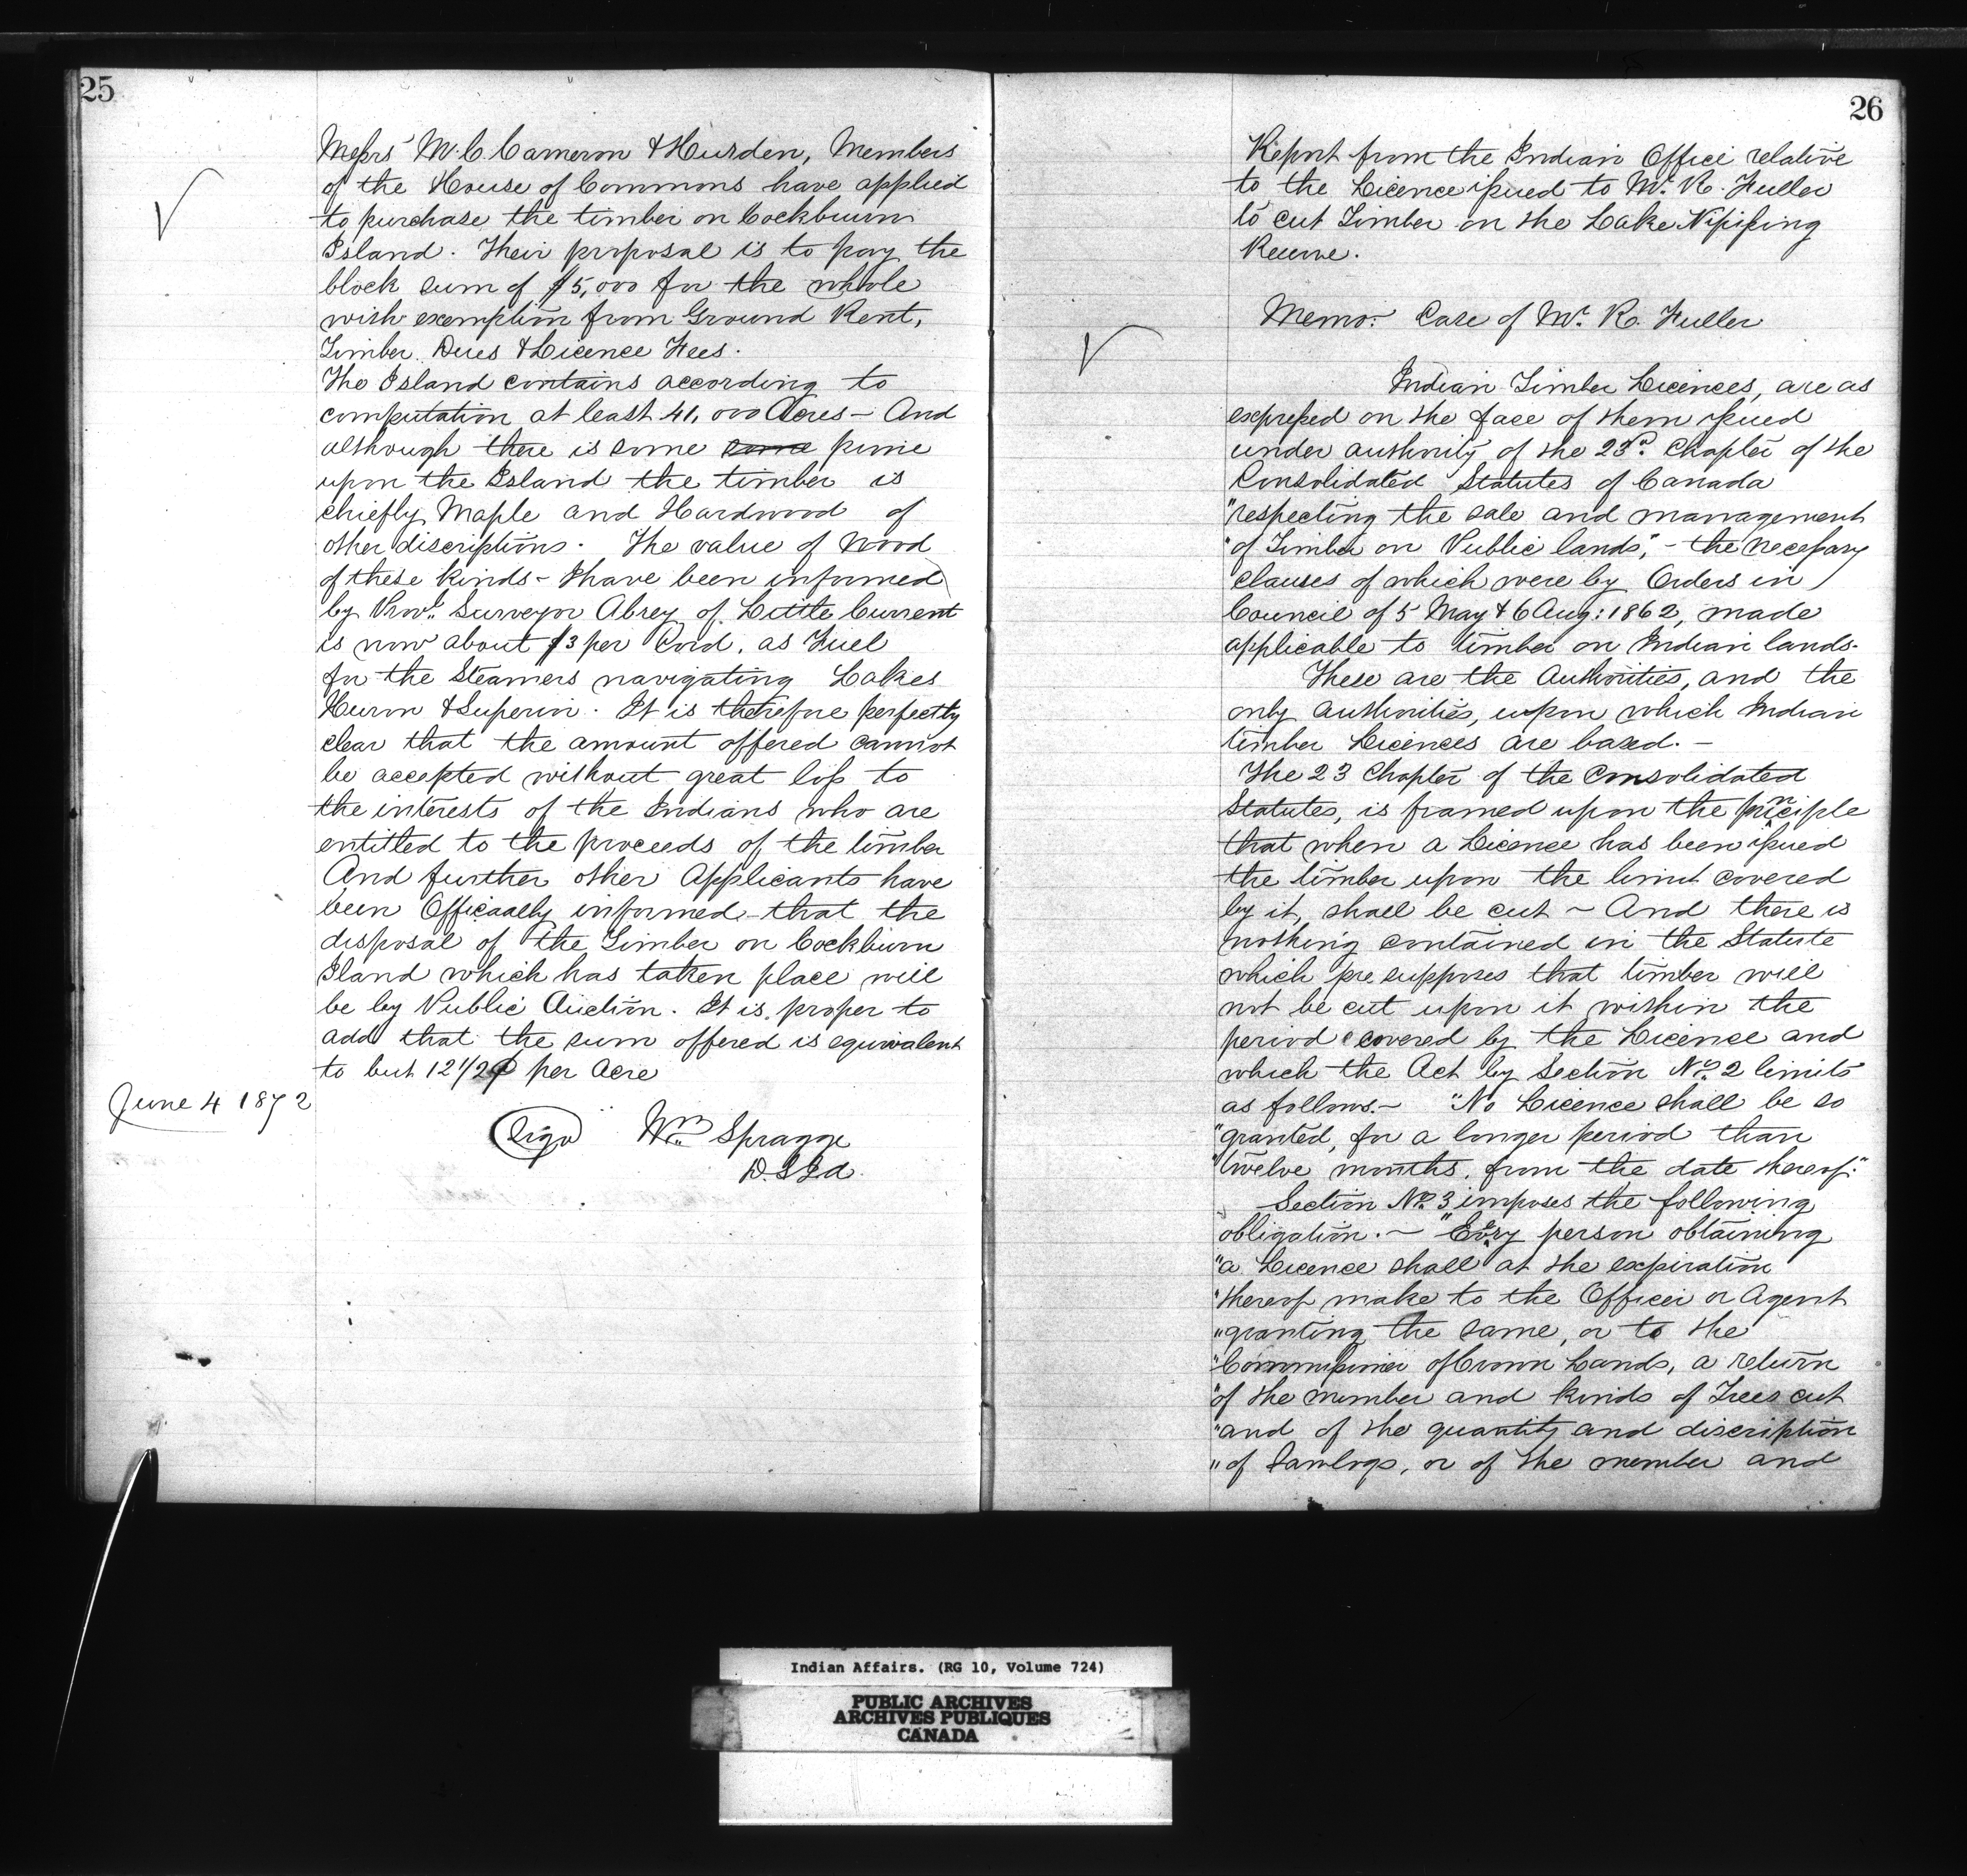 25
Messrs M.C. Cameron & Hurden, Members
of the House of Commons have applied
to purchase the timber on Cockburn
Island. Their proposal is to pay the
block sum of $5,000 for the whole
with exemption from Ground Rent,
Timber Dues & Licence Fees.
The Island contains according to
computation at least 41,000 Acres - And
although there is some some pine
upon the Island the timber is
chiefly Maple and Hardwood of
other discriptions. The value of wood
of these kinds - I have been informed
by Provl. Surveyor Abrey of Little Current
is now about $3 per Cord, as Fuel
for the Steamers navigating Lakes
Huron & Superior. It is therefore perfectly
clear that the amount offered cannot
be accepted without great loss to
the interests of the Indians who are
entitled to the proceeds of the timber
And further other Applicants have
been Officaally informed - that the
disposal of the Timber on Cockburn
Iland which has taken place will
be by Public Auction. It is proper to
add that the sum offered is equivalent
to but 12 1/2 ¢ per Acre
June 4 1872
(Sigd) Wm Spragge
D.S.I.A.
26
Report from the Indian Office relative
to the Licence issued to Mr. R. Fuller
to cut Timber on the Lake Nipissing
Reserve.
Memo: Case of Mr. R. Fuller
Indian Timber Licences, are as
expressed on the face of them issued
under authority of the 23rd. Chapter of the
Consolidated Statutes of Canada
"respecting the sale and management
"of Timber on Public lands", - the necessary
clauses of which were by Orders in
Council of 5 May & 6 Aug: 1862, made
applicable to timber on Indian lands.
These are the Authorities, and the
only authorities, upon which Indian
timber Licences are based. -
The 23 Chapter of the Consolidated
Statutes, is framed upon the principle
that when a Licence has been issued
the timber upon the limit covered
by it, shall be cut ~ And there is
nothing contained in the Statute
which pre supposes that timber will
not be cut upon it within the
period covered by the Licence and
which the Act by Section No. 2 limits
as follows. - "No Licence shall be so
"granted, for a longer period than
"twelve months, from the date thereof."
Section No. 3 imposes the following
obligation. - "Every person obtaining
"a Licence shall at the expiration
"thereof make to the Officer or Agent
"granting the same, or to the
"Commissioner of Crown Lands, a return
"of the number and kinds of Trees cut
"and of the quantity and discription
"of Sawlogs, or of the number and
Indian Affairs. (RG 10, Volume 724)
PUBLIC ARCHIVES
ARCHIVES PUBLIQUES
CANADA